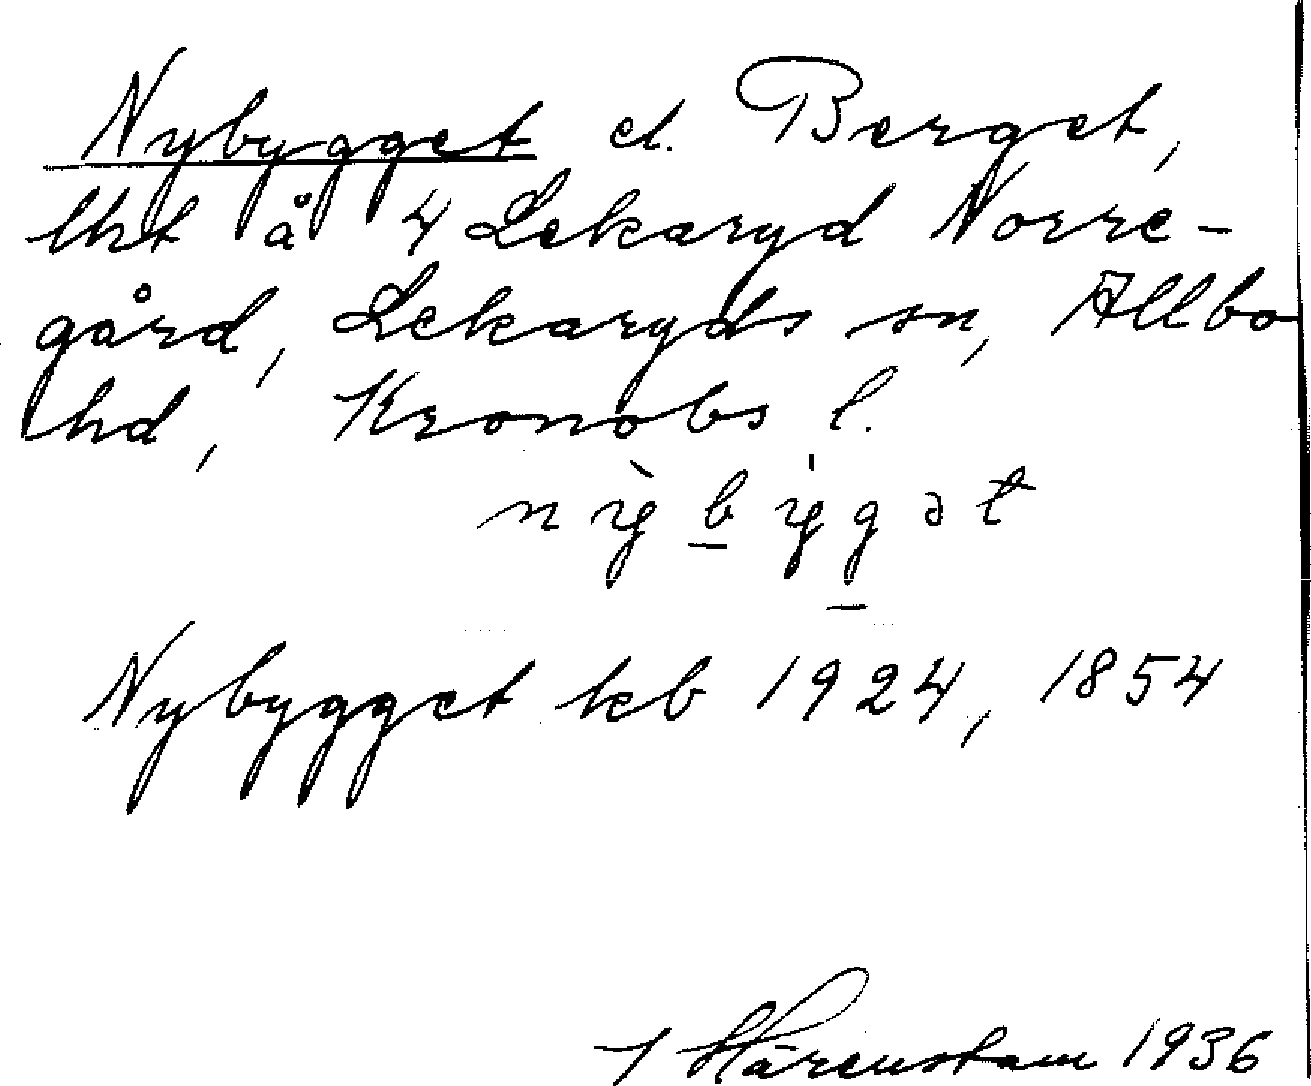 Nybygget el. Berget,
lht å 4 Lekaryd Norre-
gård, Lekaryds sn, Allbo
hd, Kronobs l.
nỳby̍gət
Nybygget kb 1924, 1854
I Härenstam 1936